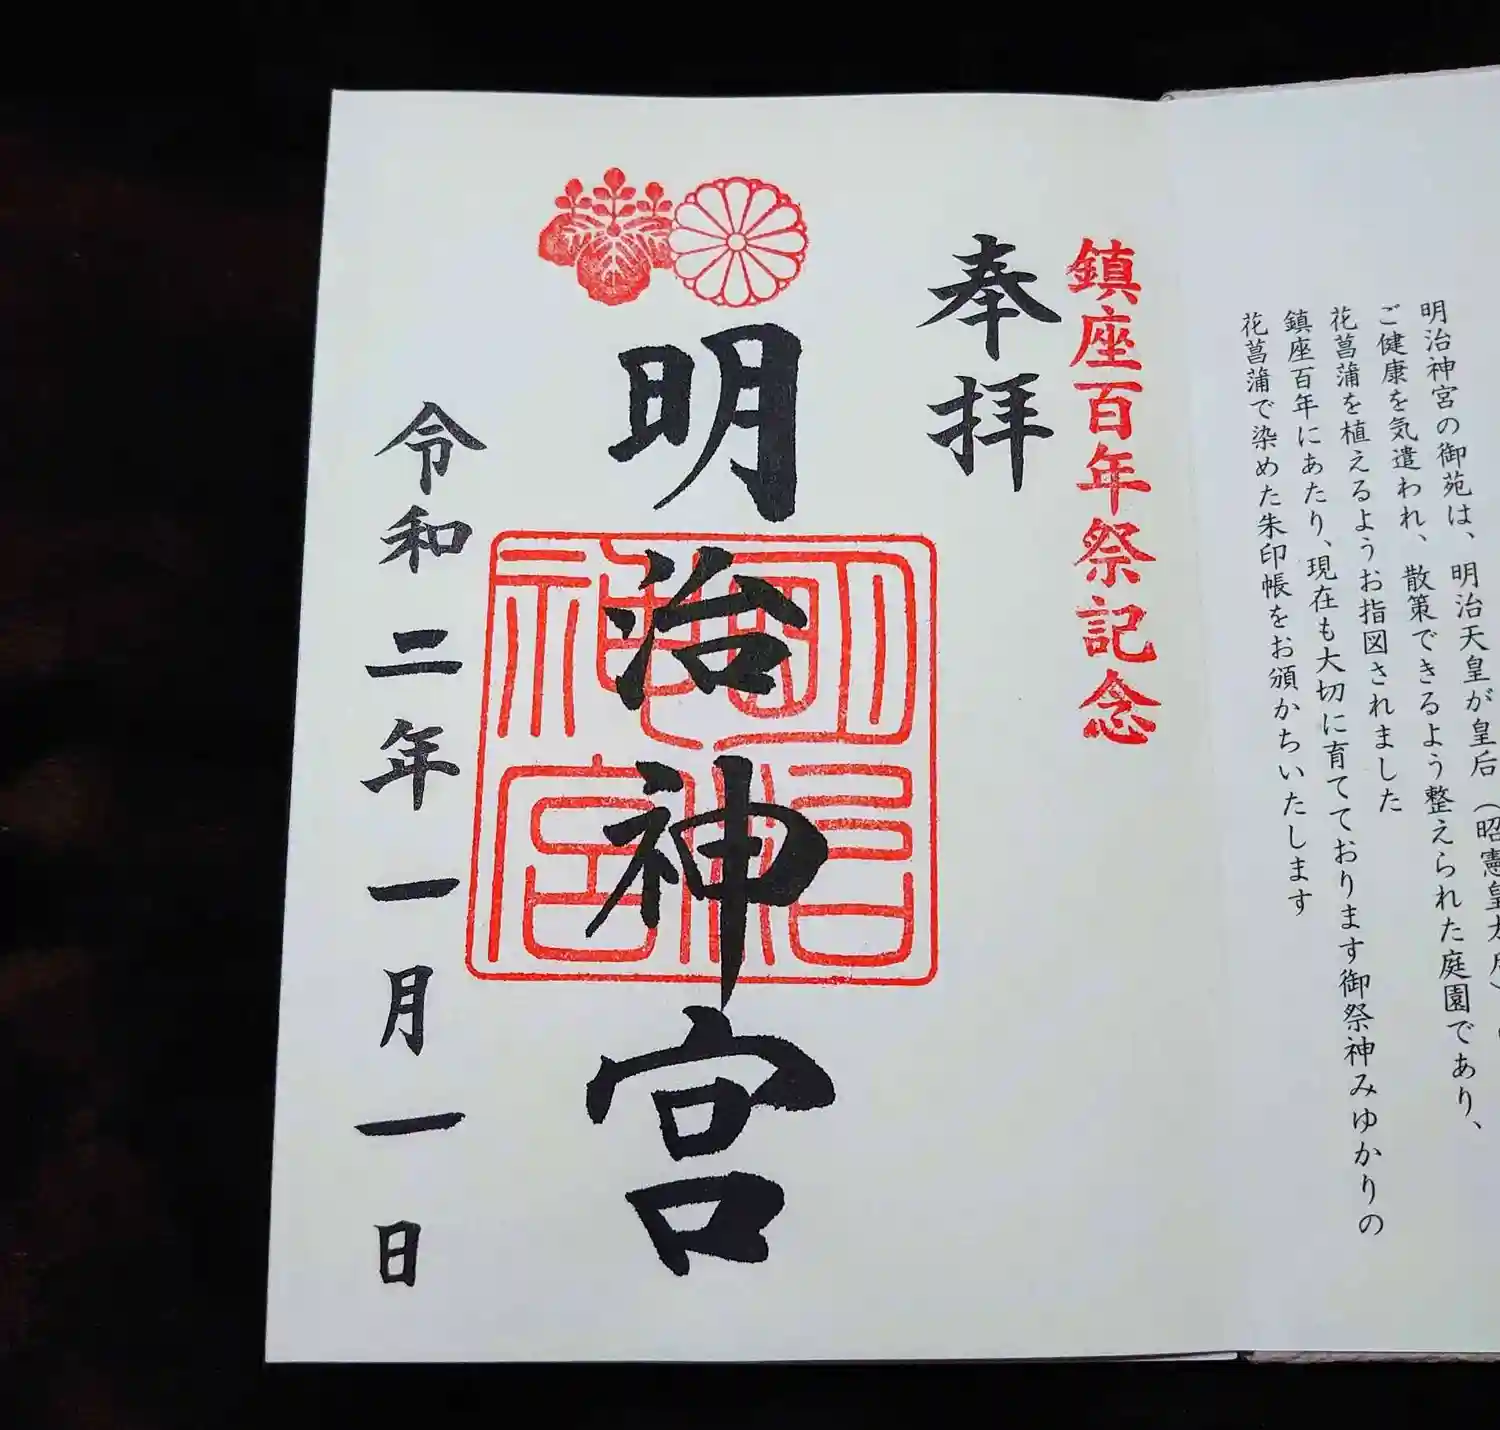 明治神宮の御苑は、明治天皇が皇后（昭憲皇太后）の
ご健康を気遣われ、散策できるよう整えられた庭園であり、
花菖蒲を植えるようお指図されました
鎮座百年にあたり、現在も大切に育てております御祭神みゆかりの
花菖蒲で染めた朱印帳をお頒かちいたします
鎮座百年祭記念
奉拝
明治神宮
明治神宮
令和二年一月一日